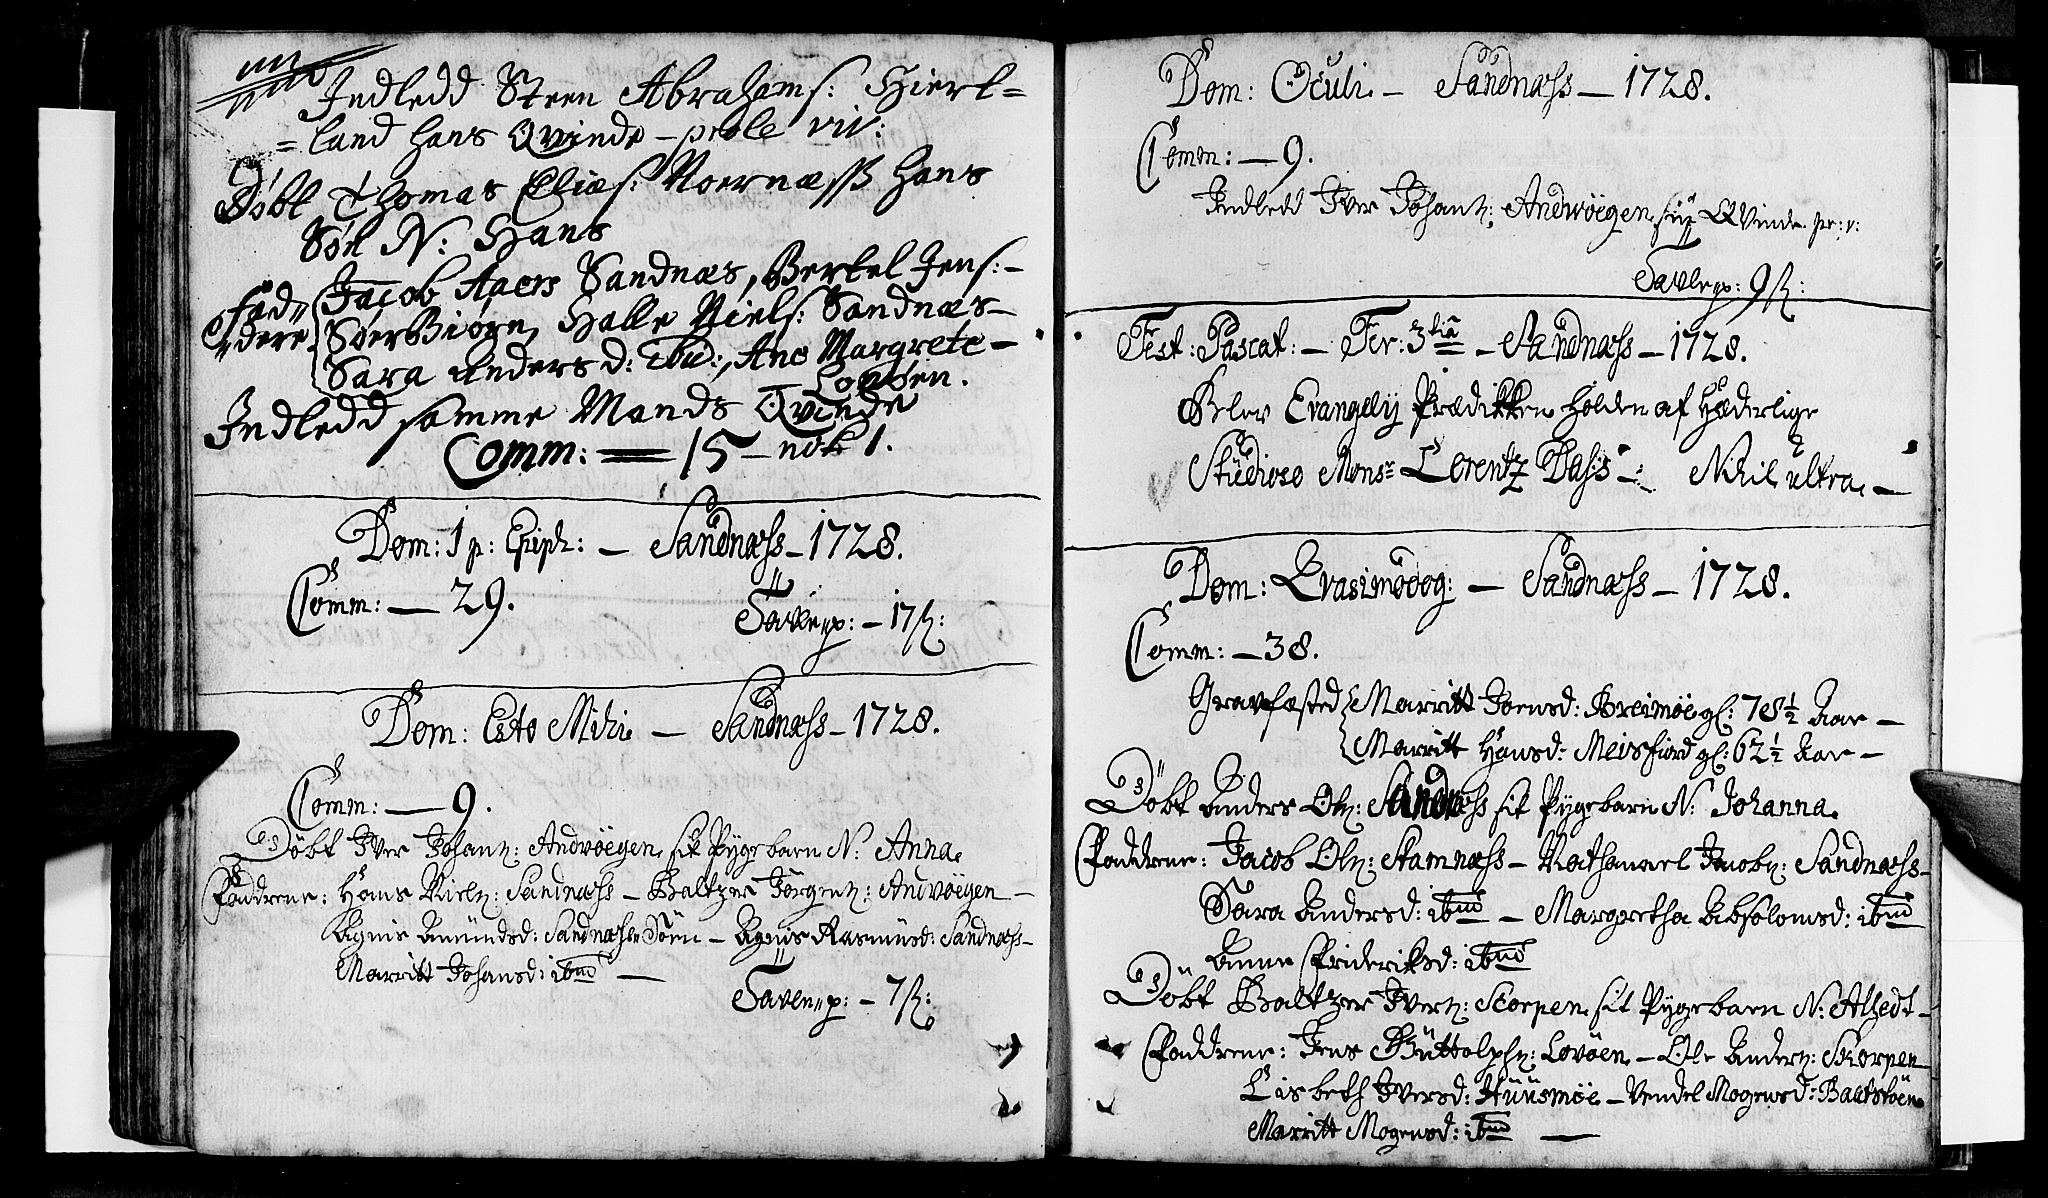 Indledd Steen Abrahams: Hierl=
=land hans Qvinde – prole viv:
Döbt Thomas Elias: Noernæss hans
Sön N: Hans
Jacob Aaers Sandnæs, Bertel Jens: –
fad=
dere
SöerBiörn, Halle Niels: Sandnæs –
Sara Andersd: ibid:, Ane Margrete –
Lovöen.
Indledd samme Mands Qvinde
Comm: = 15 – nok 1.
Dom: 1 p: Epiph: – Sandnæss – 1728.
Comm: – 29.
Tavlep: – 17 ß:
Dom: Esto Mihi – Sandnæss – 1728.
Comm: – 9.
Döbt Iver Johanz: Andvöegen sit Pygebarn N: Anna.
Faddrene: Hans Nielz: Sandnæss – Baltzer Jörgenz: Andvöegen –
Agnis Amundsd: Sandnæss – Agnis Rasmusd: Sandnæss –
Marritt Johansd: ibud –
Tavlenp: – 7 ß:
Dom: Oculi – Sandnæss – 1728.
Comm: – 9.
Indledd Iver Johanz: Andvöegen sin Qvinde pr: v:
Tavlep: 9 ß:
Fest: Pascat: – Fer: 3tia – Sandnæss – 1728.
Blev Evangelij Prædikken holden af Hæderlige
Studioso Monsr Lorentz Dass –: Nihil ultra. –
Dom: Qvasimodog: – Sandnæss – 1728.
Comm: – 38.
Gravfæsted Marritt Joensd: Breimöe gl: 78½ Aar –
Marritt Hansd: Meisfiord gl: 62½ Aar –
Döbt Anders Olz: Sandnæss sit Pygebarn N: Johanna.
Faddrene: Jacob Olz: Stamnæss – Nathanael Jacobz: Sandnæss –
Sara Andersd: ibud – Margretha Absolomsd: ibud
Anne Frideriksd: ibud
Döbt Baltzer Iverz: Scorpen sit Pygebarn N: Alhedt –
Faddrene: Jens Buttolphz: Lovöen – Ole Anderz: Skorpen
Lisbeth Iversd: Huusmöe – Vendel Mogensd: Baatstöen
Marritt Mogensd: ibud –